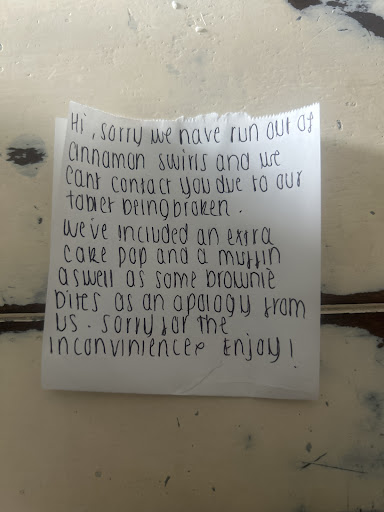 Hi, sorry we have run out of
cinnamon swirls and we
cant contact you due to our
tablet being broken.
we've included an extra
cake pop and a muffin
aswell as some brownie
bites as an apology from
us. sorry for the
inconvinience. Enjoy!